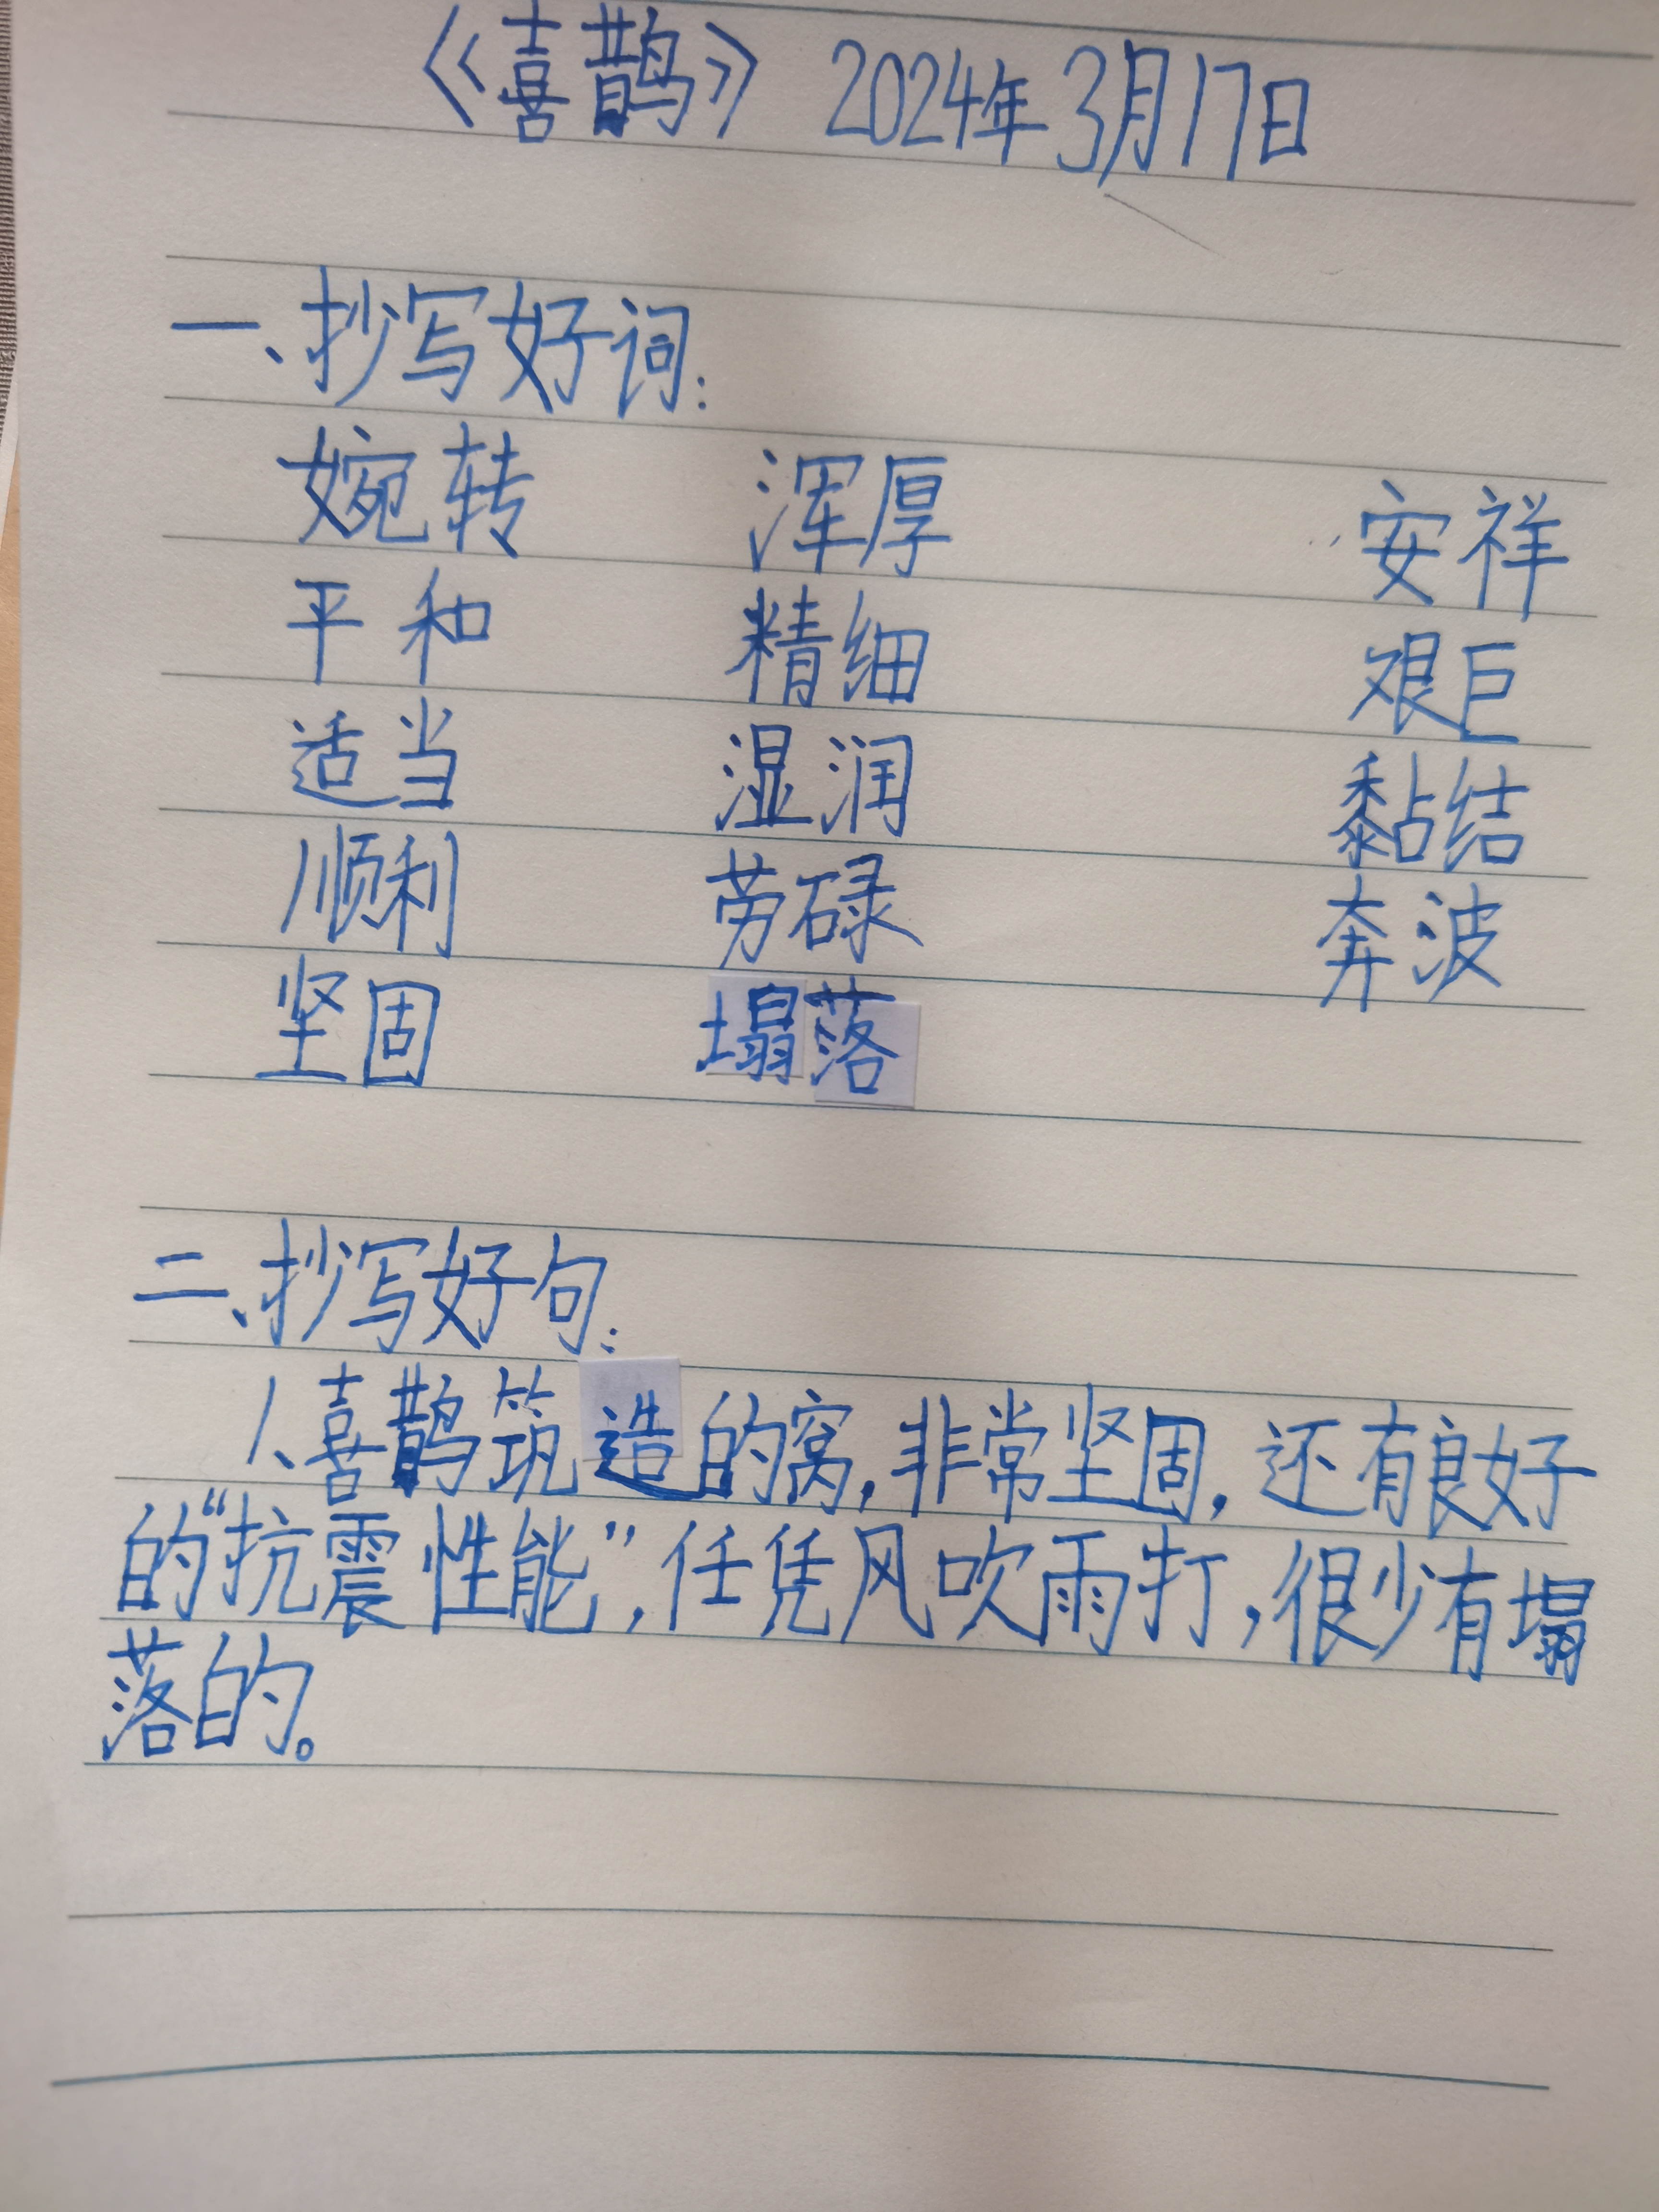 《喜鹊》 2024年3月17日
一、抄写好词:
婉转 浑厚 安祥
平和 精细 艰巨
适当 湿润 黏结
顺利 劳碌 奔波
坚固 塌落
二、抄写好句:
1、喜鹊筑造的窝,非常坚固,还有良好
的“抗震性能”,任凭风吹雨打,很少有塌
落的。